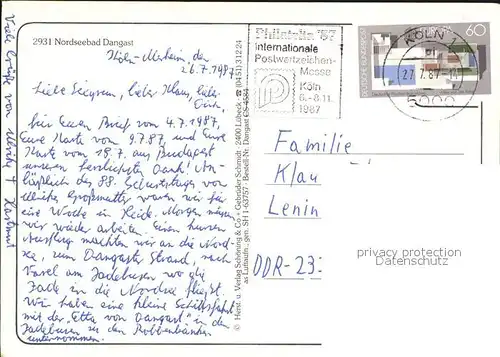 2931 Nordseebad Dangast
Köln-Merheim, den
26.7.1987
Liebe Seigrun, lieber Klaus, lieber
Erik,
für Euren Brief vom 4.7.1987,
Eure Karte vom 9.7.87, und Eure
Karte vom 18.7. aus Budapest
unseren herzlichsten Dank! An-
läßlich des 88. Geburtstages von
Ulrikes Großmutter waren wir für
eine Woche in Heide. Morgen müssen
wir wieder arbeiten. Einen kurzen
Ausflug machten wir an die Nord-
see, zum Dangaster Strand, nach
Varel am Jadebusen wo die
Jade in die Nordsee fließt.
Wir haben eine kleine Schiffsfahrt
mit der "Etta von Dangast" in den
Jadebusen zu den Robbenbänken
unternommen.
Viele Grüße von Ulrike + Hartmut
© Herst. u. Verlag Schöning & Co + Gebrüder Schmidt · 2400 Lübeck · ☎ (0451) 31224
as Luftaufn.: gen. SH 1-637/57 · Bestell-Nr. Dangast
Philatelia '87
internationale
Postwertzeichen-
Messe
Köln
6.-8.11.
1987
DEUTSCHE BUNDESPOST
60
KÖLN 1
27.7.87
5000
Familie
Klau
Lenin
DDR-23
privacy protection
Datenschutz